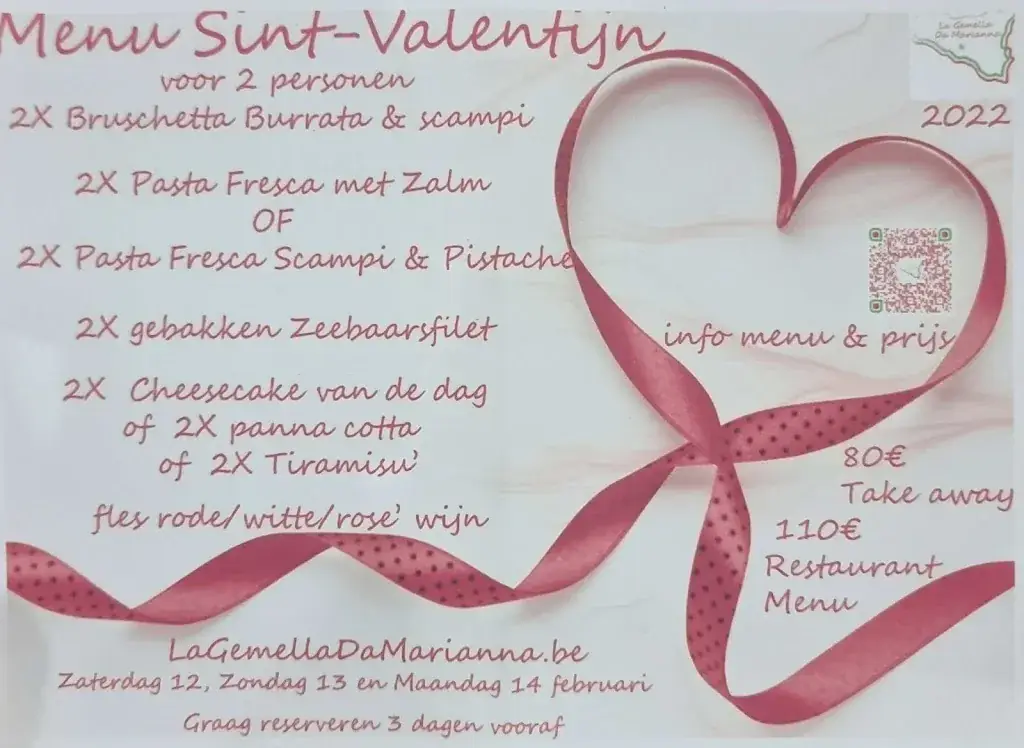 Menu Sint-Valentijn
La Gemella
Da Marianna
voor 2 personen
2022
2X Bruschetta Burrata & scampi
2X Pasta Fresca met Zalm
OF
2X Pasta Fresca Scampi & Pistache
2X gebakken Zeebaarsfilet
info menu & prijs
2X Cheesecake van de dag
of 2X panna cotta
of 2X Tiramisu'
80€
Take away
fles rode/witte/rose' wijn
110€
Restaurant
Menu
LaGemellaDaMarianna.be
Zaterdag 12, Zondag 13 en Maandag 14 februari
Graag reserveren 3 dagen vooraf